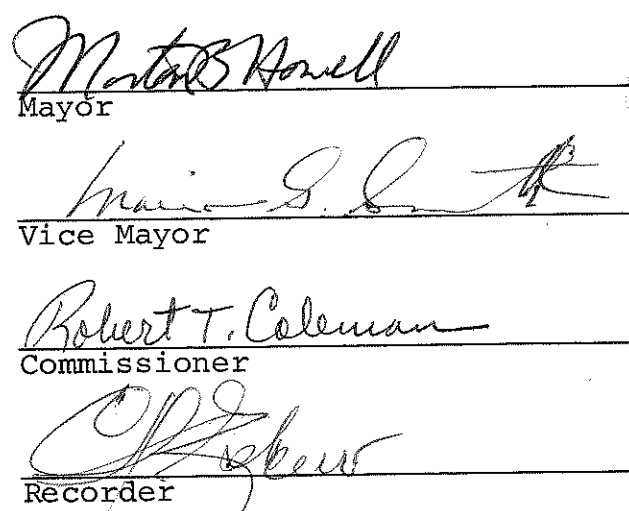 Morton B Howell
Mayor
S. Smith
Vice Mayor
Robert T. Coleman
Commissioner
Recorder